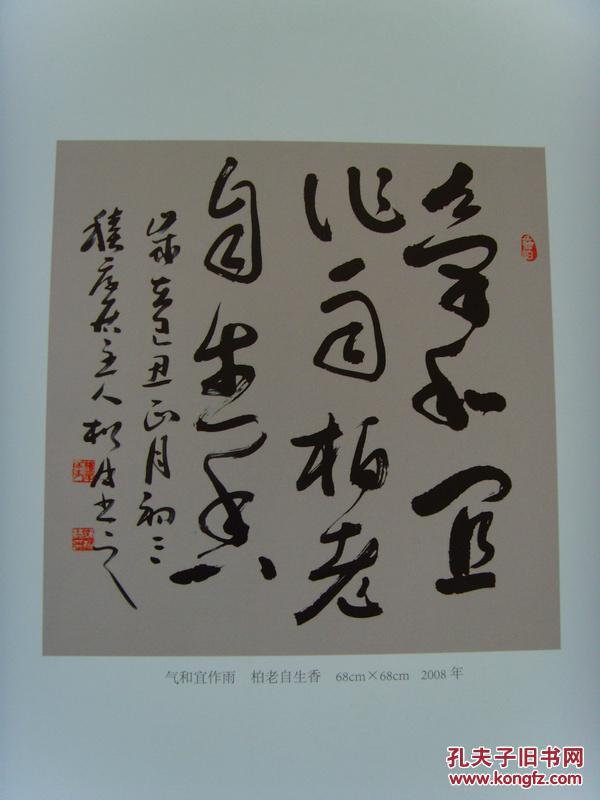 氣和宜
作雨柏老
自生香
歲在己丑正月初三
主人松月書之
气和宜作雨 柏老自生香 68cm×68cm 2008年
孔夫子旧书网
www.kongfz.com